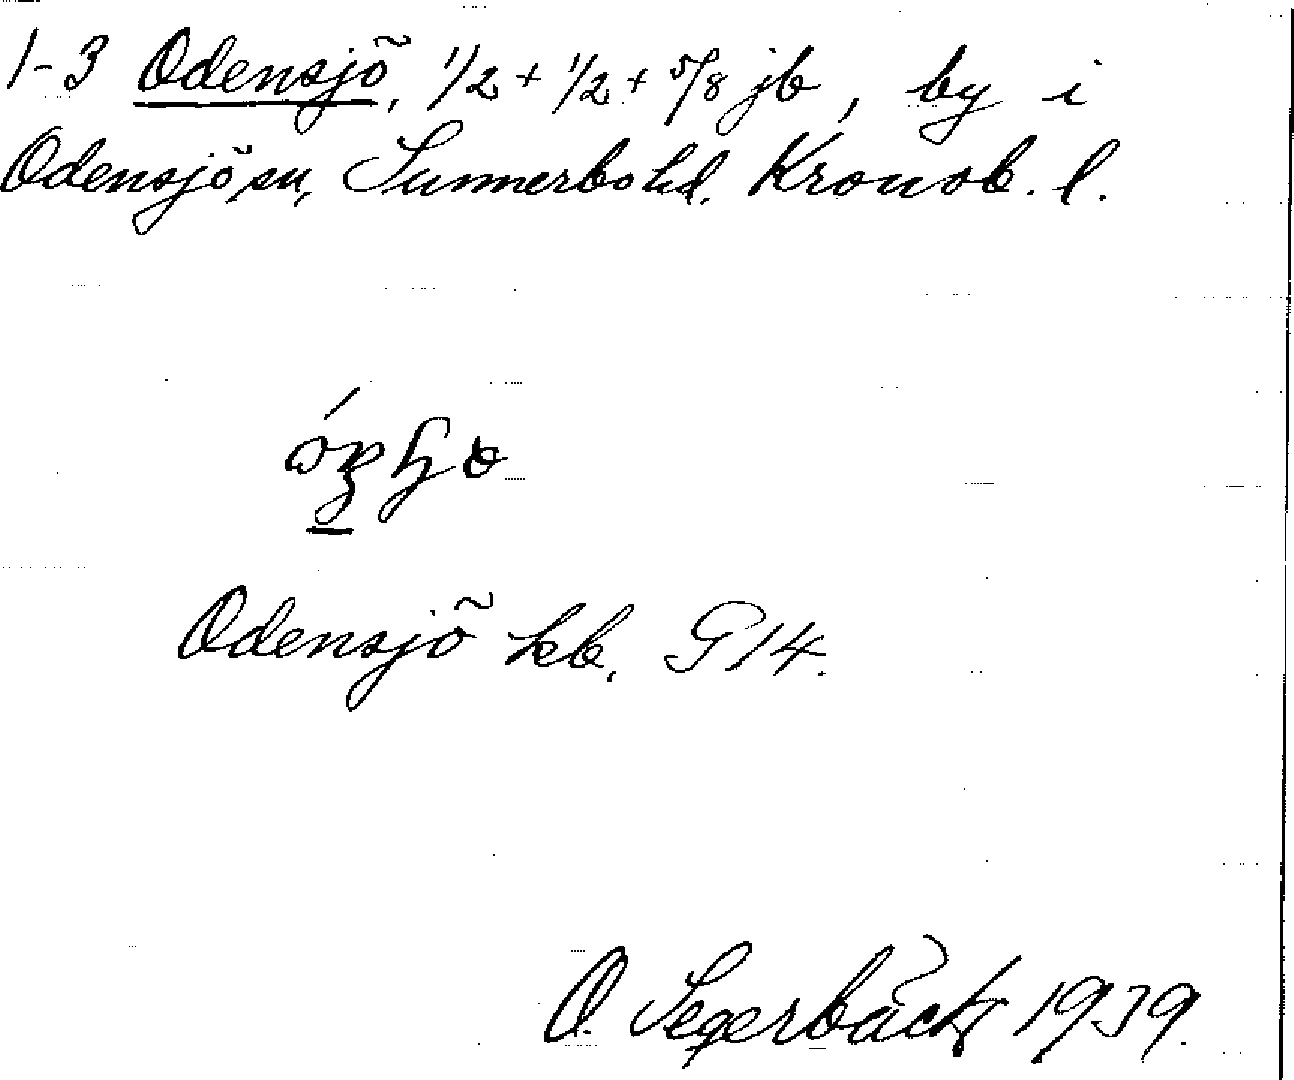 1-3 Odensjö, 1/2 + 1/2 + 5/8 jb, by i
Odensjö sn, Sunnerbo hd. Kronob. l.
Odensjö kb. G14.
O. Segerbäck 1939.